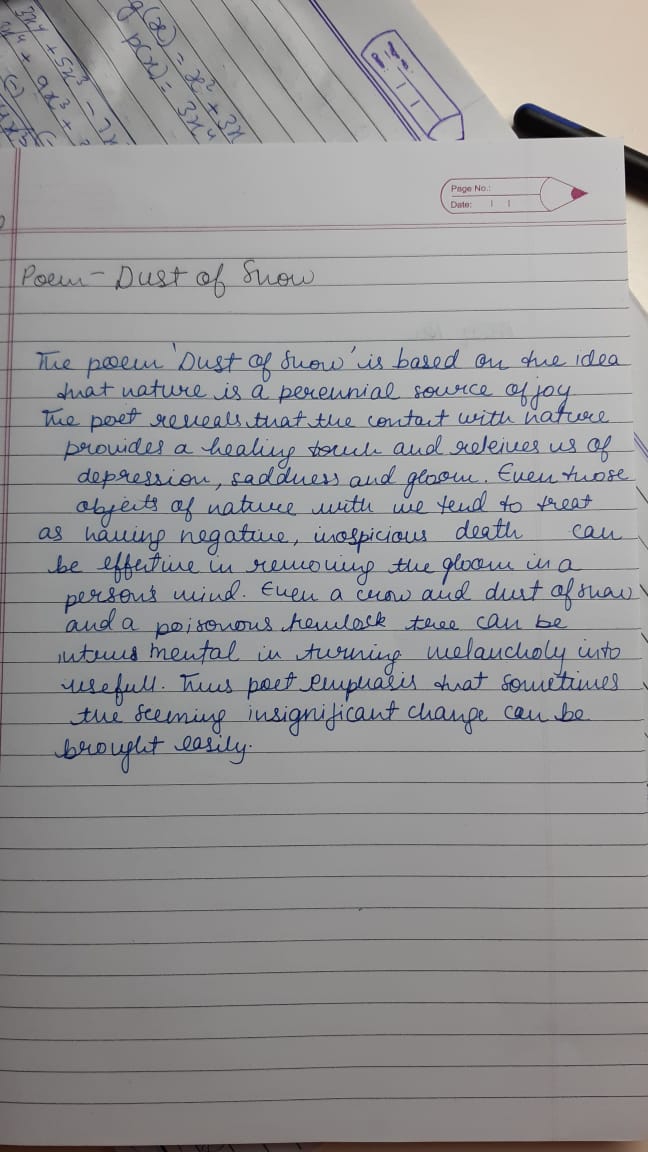 g(x) = x² + 3x
p(x) = 3x⁴
Page No.:
Date:
Poem - Dust of Snow
The poem 'Dust of Snow' is based on the idea
that nature is a perennial source of joy
The poet reveals that the contact with nature
provides a healing touch and releives us of
depression, saddness and gloom. Even those
objects of nature with we tend to treat
as having negative, inospicious death can
be effective in removing the gloom in a
person's mind. Even a crow and dust of snow
and a poisonous hemlock tree can be
intrus mental in turning melancholy into
usefull. Thus poet emphasis that sometimes
the seeming insignificant change can be
brought easily.